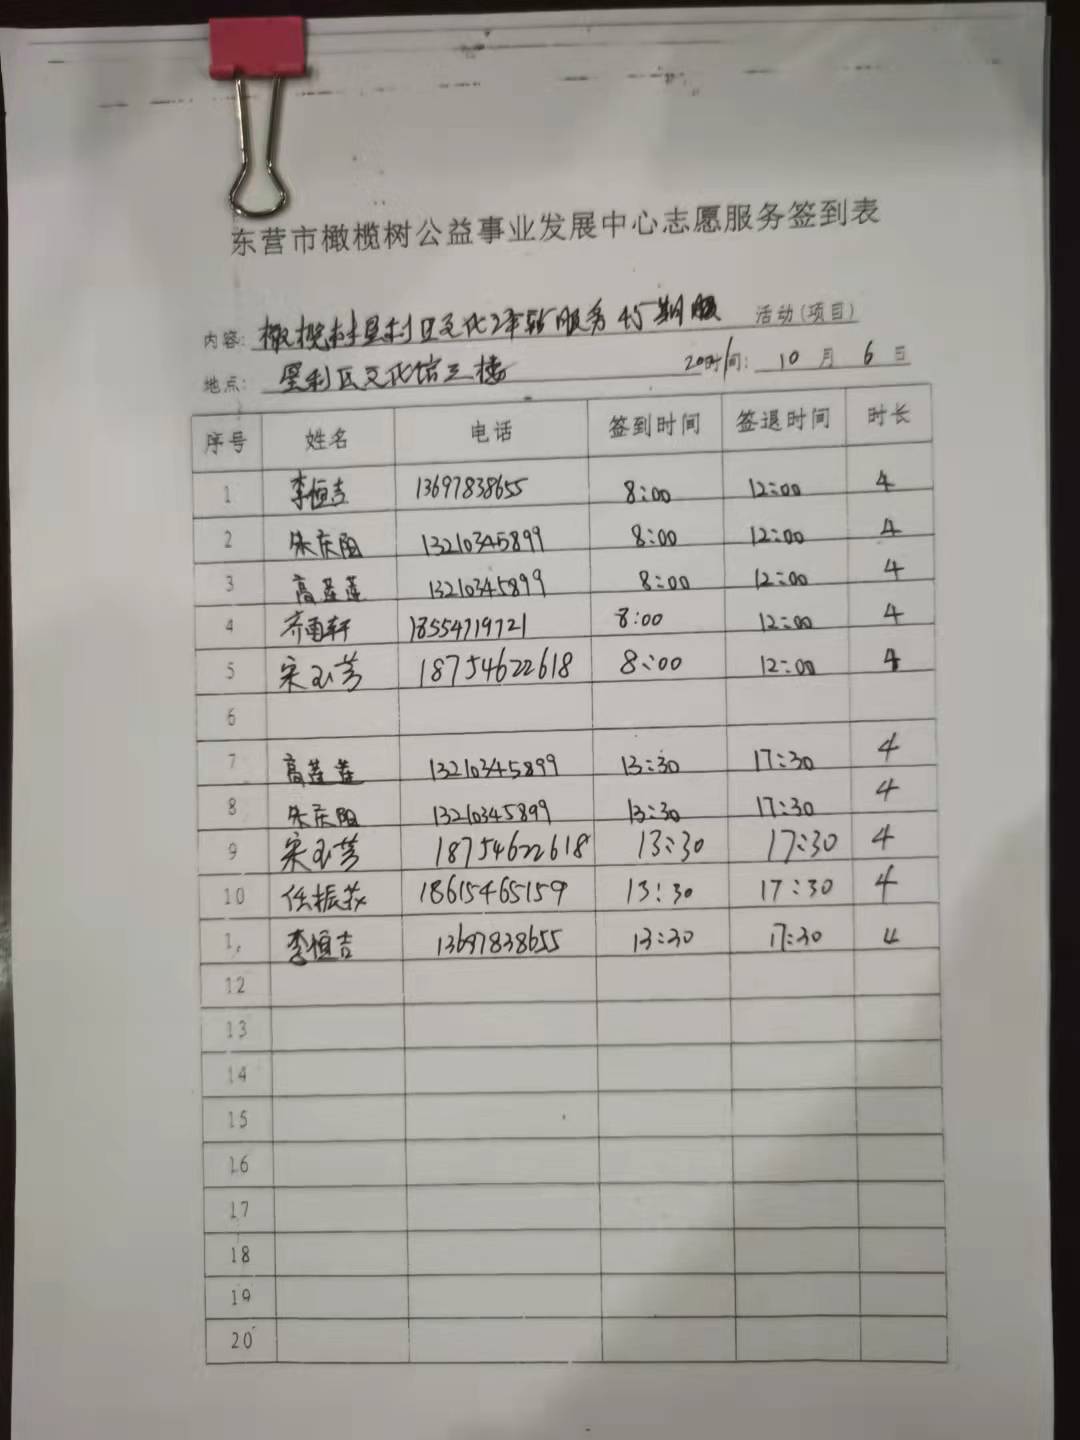 东营市橄榄树公益事业发展中心志愿服务签到表
内容: 橄榄树垦利区文化 服务45期 活动(项目)
地点: 垦利区文化馆三楼 时间: 10月6日
序号 姓名 电话 签到时间 签退时间 时长
1 李恒吉 13697838655 8:00 12:00 4
2 朱庆阳 13210345899 8:00 12:00 4
3 高莲莲 13210345899 8:00 12:00 4
4 齐雨轩 18554719721 8:00 12:00 4
5 宋玉芳 18754622618 8:00 12:00 4
6
7 高莲莲 13210345899 13:30 17:30 4
8 朱庆阳 13210345899 13:30 17:30 4
9 宋玉芳 18754622618 13:30 17:30 4
10 任振 18615465159 13:30 17:30 4
1, 李恒吉 13697838655 13:30 17:30 4
12
13
14
15
16
17
18
19
20